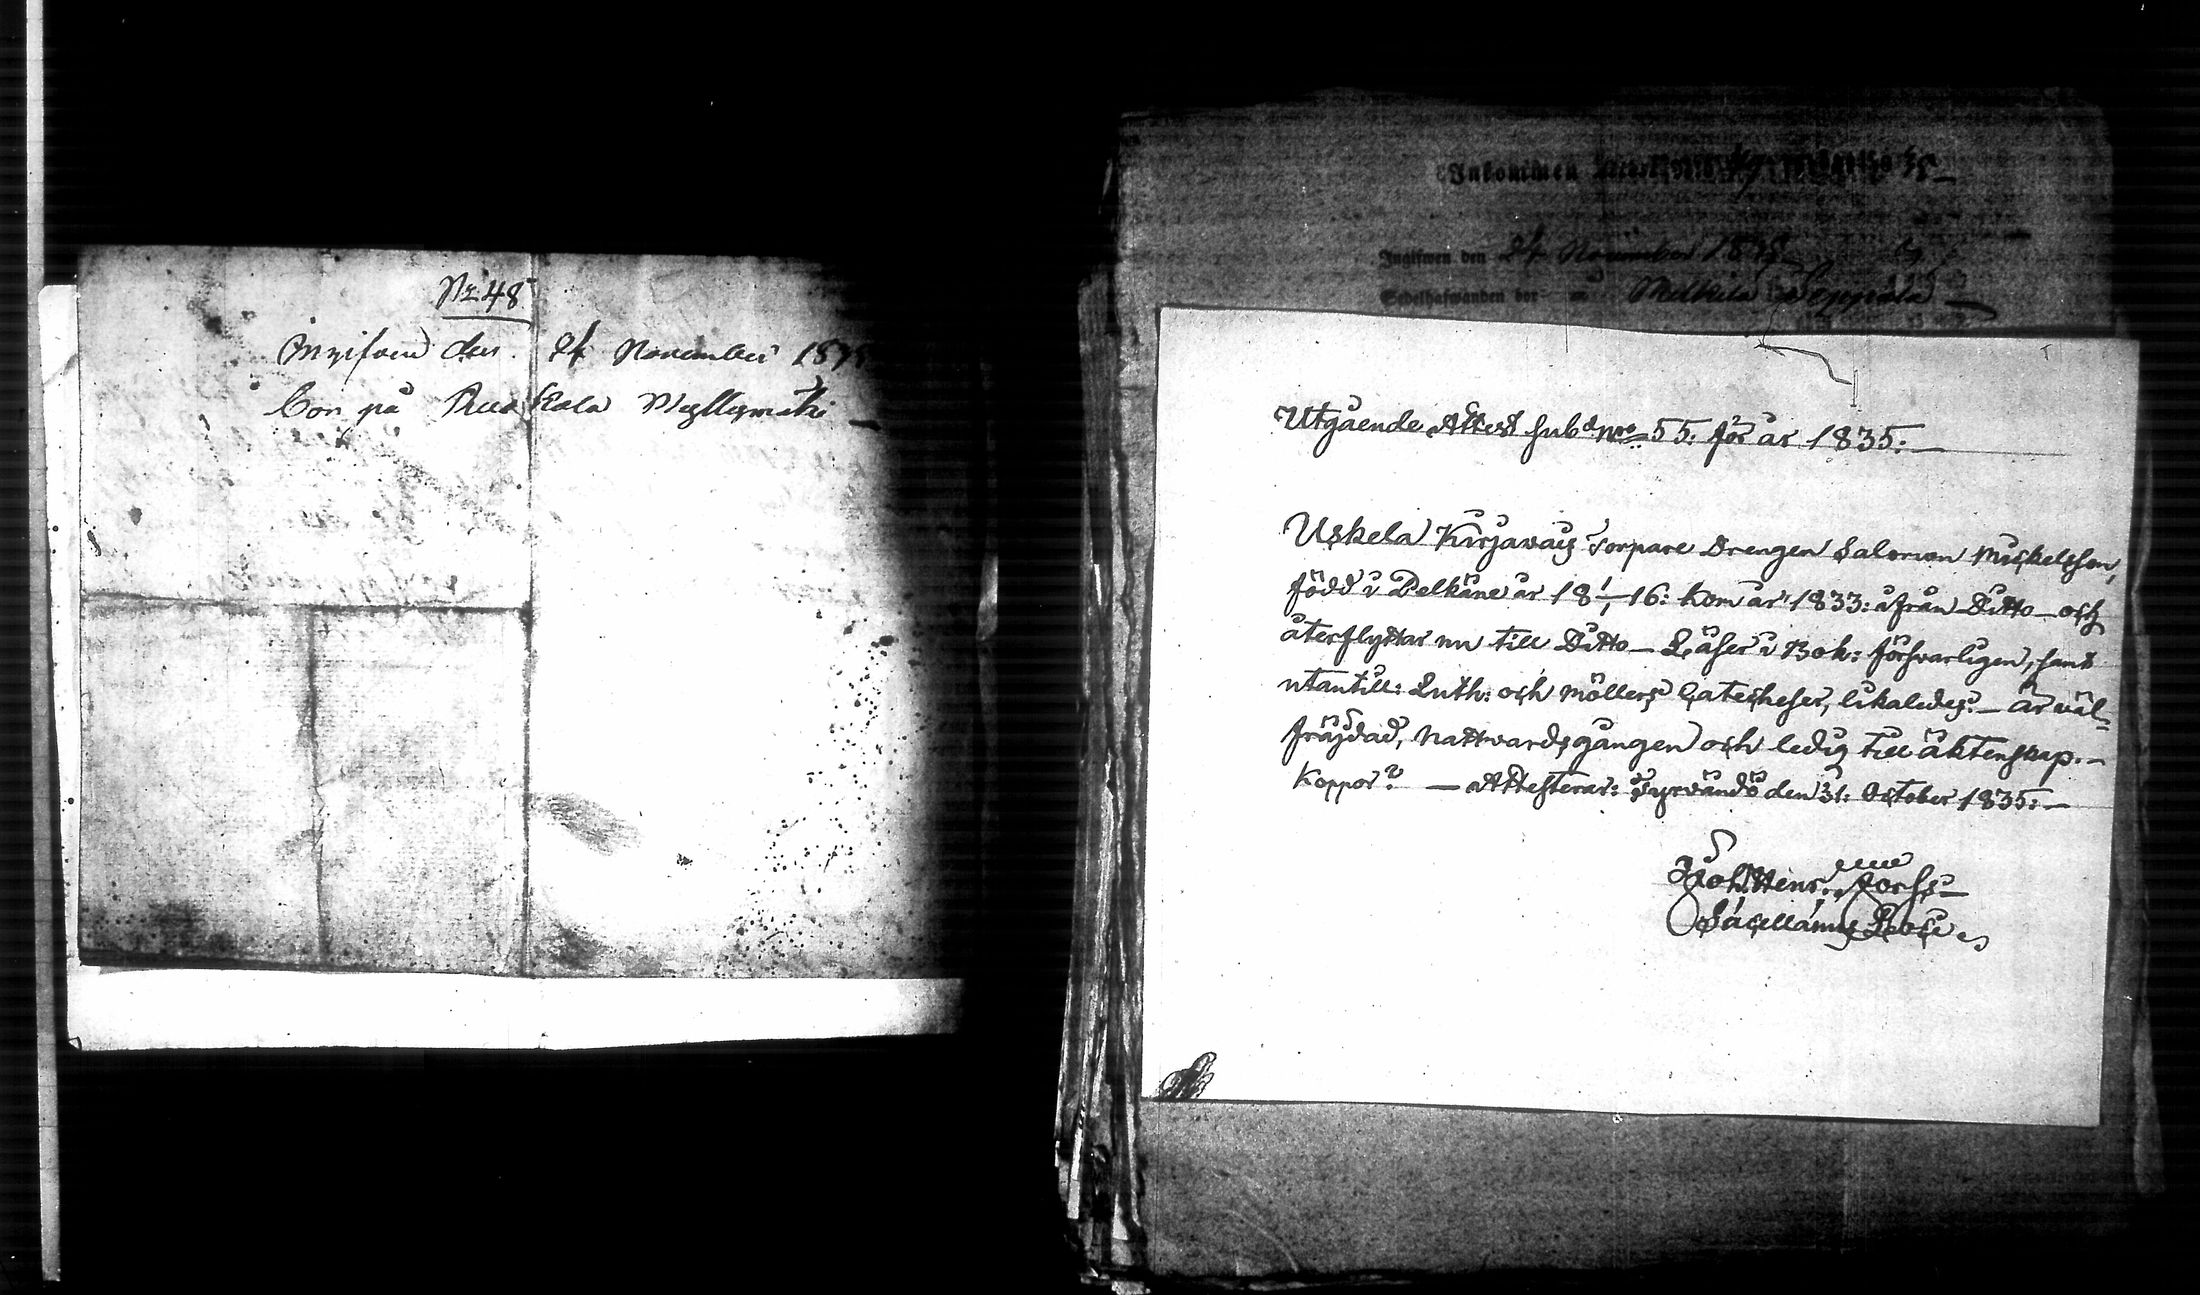 No 48
Ingifven den 24 November 1875
Bor på Myllymäki
Inkommen
Ingifwen den 24 November 1875
Sedelhafwanden bor å Mellilä Seppälä
Utgående Attest sub no 55: för år 1835:
Uskela Kirjavais Torpare Drengen Salomon Mickelsson,
född i Pelkäne år 18 1/1 16: kom år 1833: ifrån Ditto – och
återflyttar nu till Ditto – Läser i Bok: försvarligen, samt
utantill: Luth: och Möllers Catecheser, likaledes. – Är väl-
fräjdad, Nattvardsgången och ledig till äktenskap. –
Koppor? – Attesterar: Syrvändö den 31: October 1835: –
Joh. Henr. Forss
Sacellanus Loci